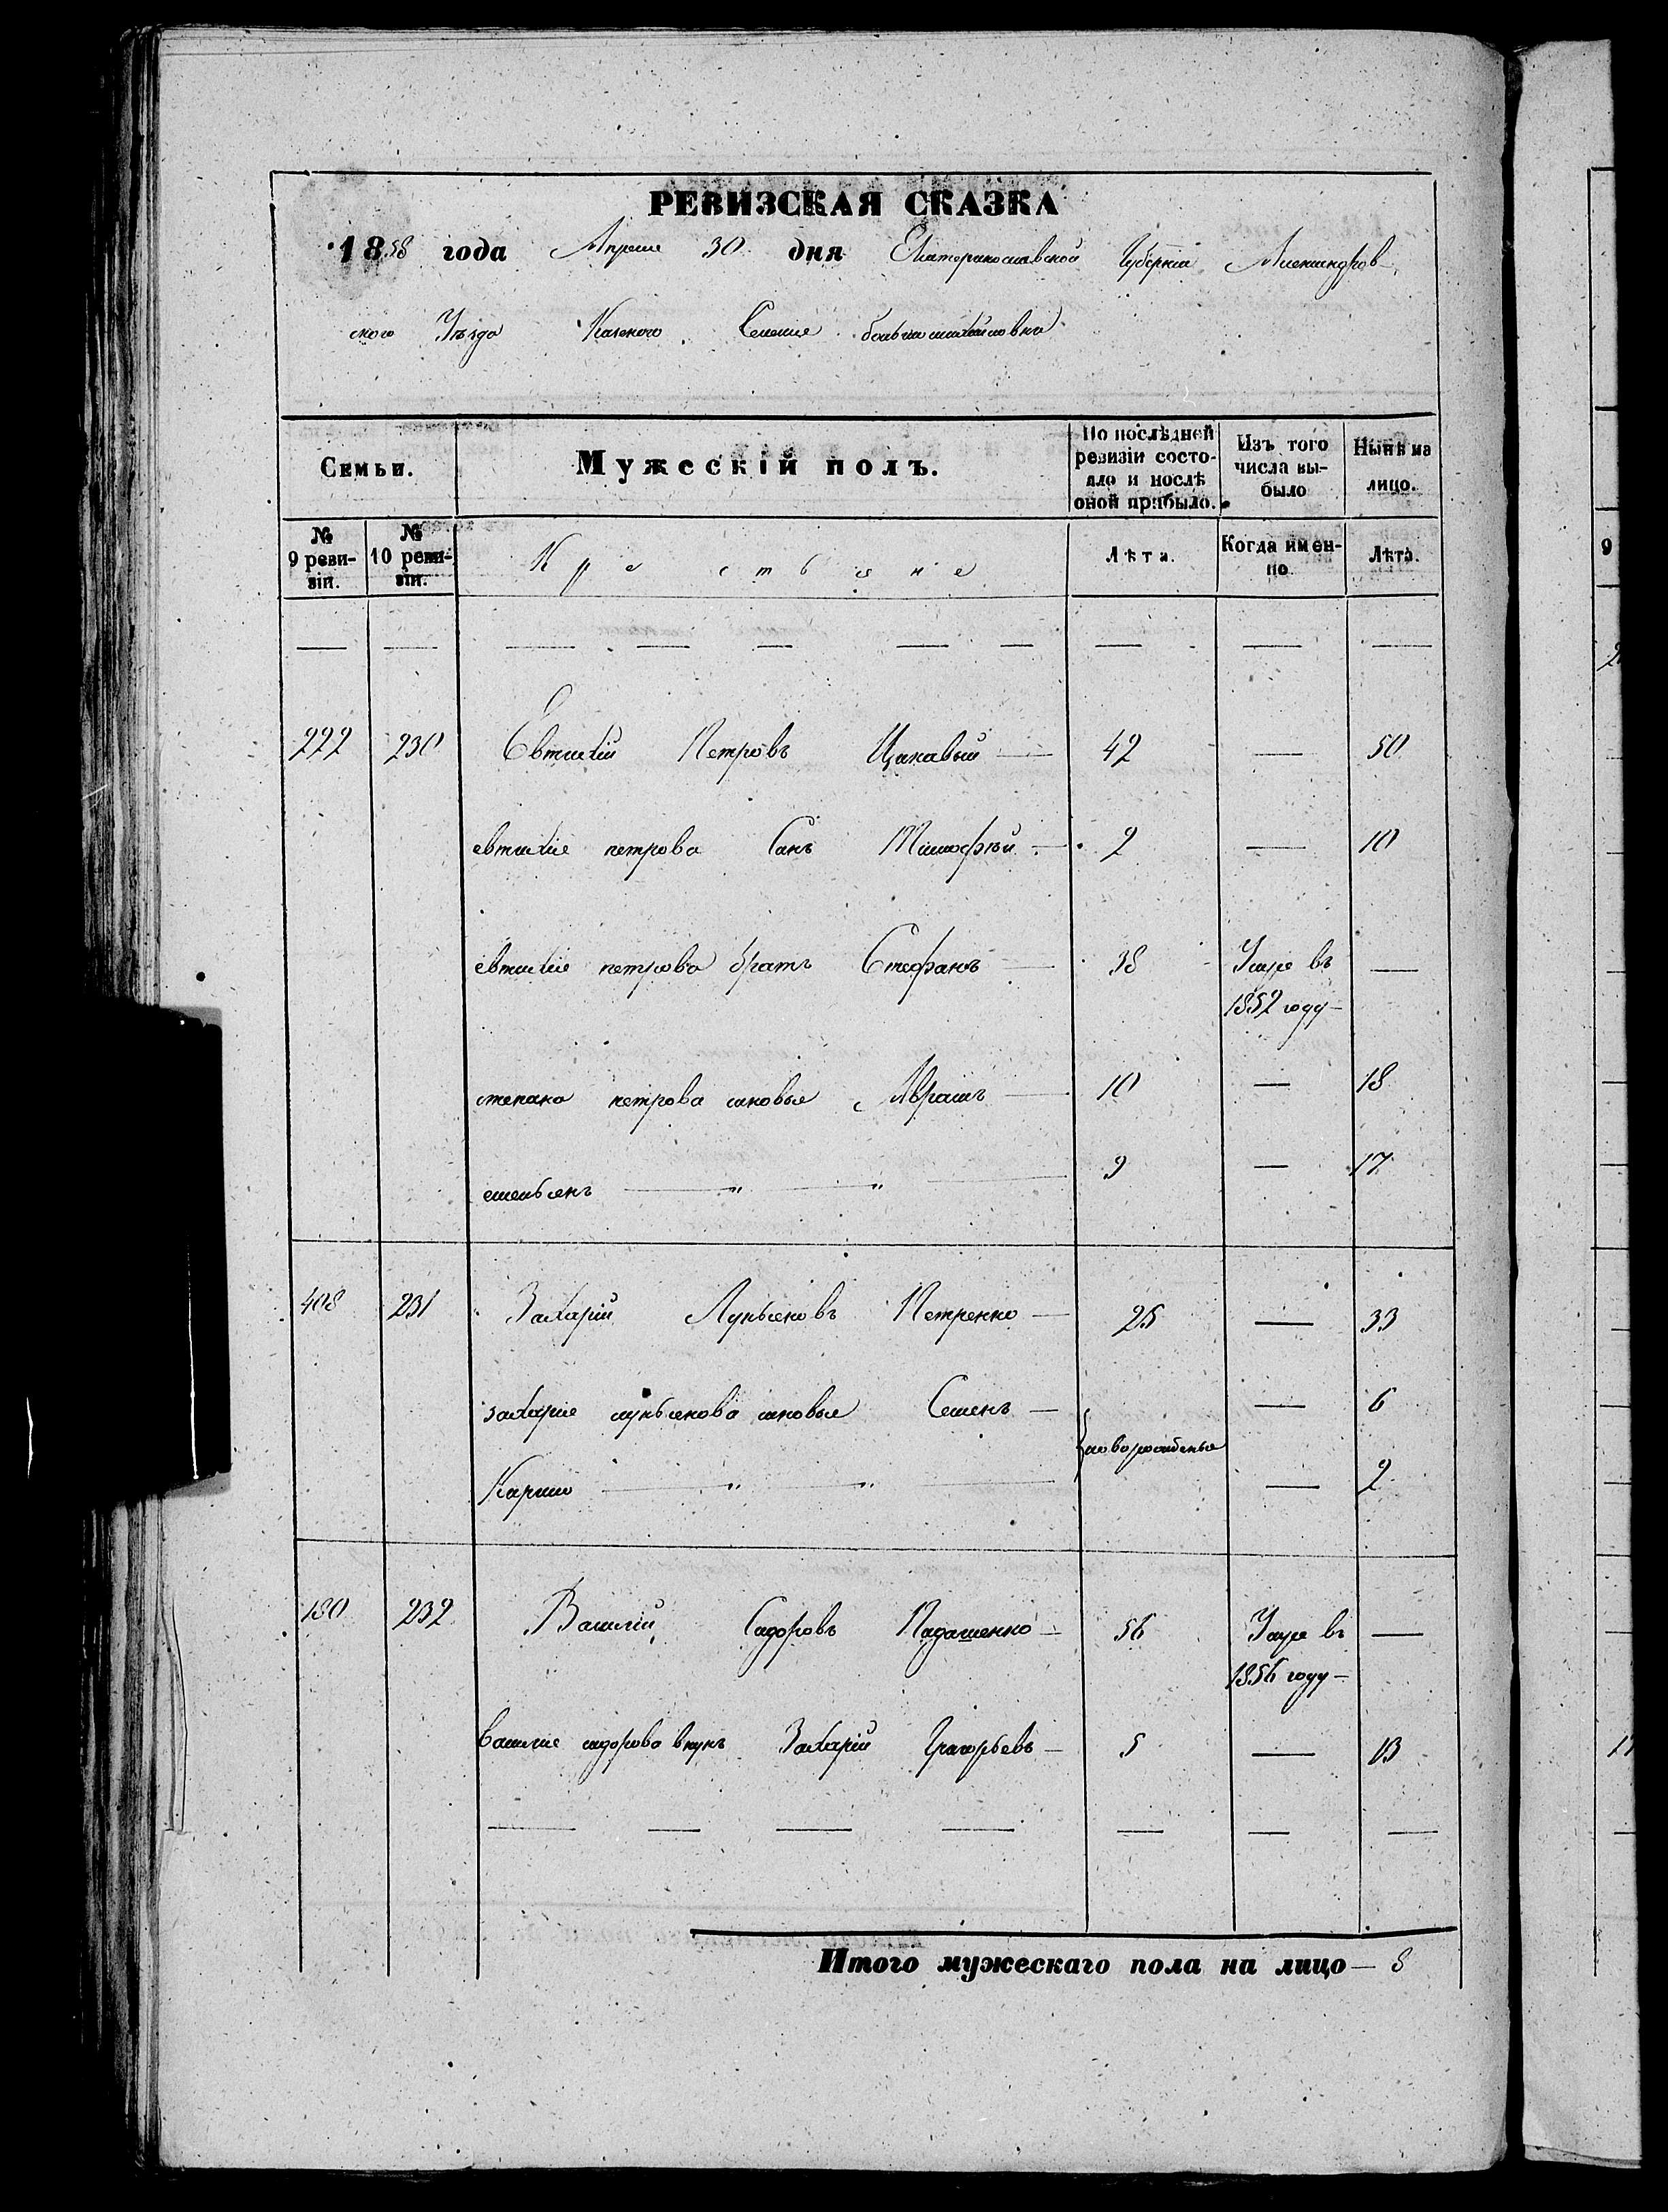 РЕВИЗСКАЯ СКАЗКА
1858 года Апреля 30 дня Екатеринославской Губерніи Александров-
ского Уезда Казеного Селения больчемихайловка
Семьи. Мужескій полъ. По послѣдней ревизіи состо-яло и послѣ оной прибыло. Изъ того числа вы-было Нынѣ на лицо.
№ 9 реви-зіи. № 10 реви-зіи. Крестьяне Лѣта. Когда имен-но Лѣта.
— — — — — — — — — —
222 230 Евтихій Петровъ Цикавый — 42 — 50
евтихіе петрова Синъ Тимофѣй — 2 — 10
евтихіе петрова братъ Стефанъ — 38 Умре въ —
1852 году —
степана петрова синовья Аврамъ — 10 — 18
емельянъ — " — " — 9 — 17
408 231 Захарій Лукьяновъ Петренко — 25 — 33
захаріе лукьянова синовья Семенъ — новорожденые — 6
Карпо — " — " — — 2
180 232 Василій Сидоровъ Падашенко — 56 Умре въ —
1856 году —
василіе сидорова внукъ Захарій Григорьевъ — 5 — 13
— — — — — — —
Итого мужескаго пола на лицо — 8
9